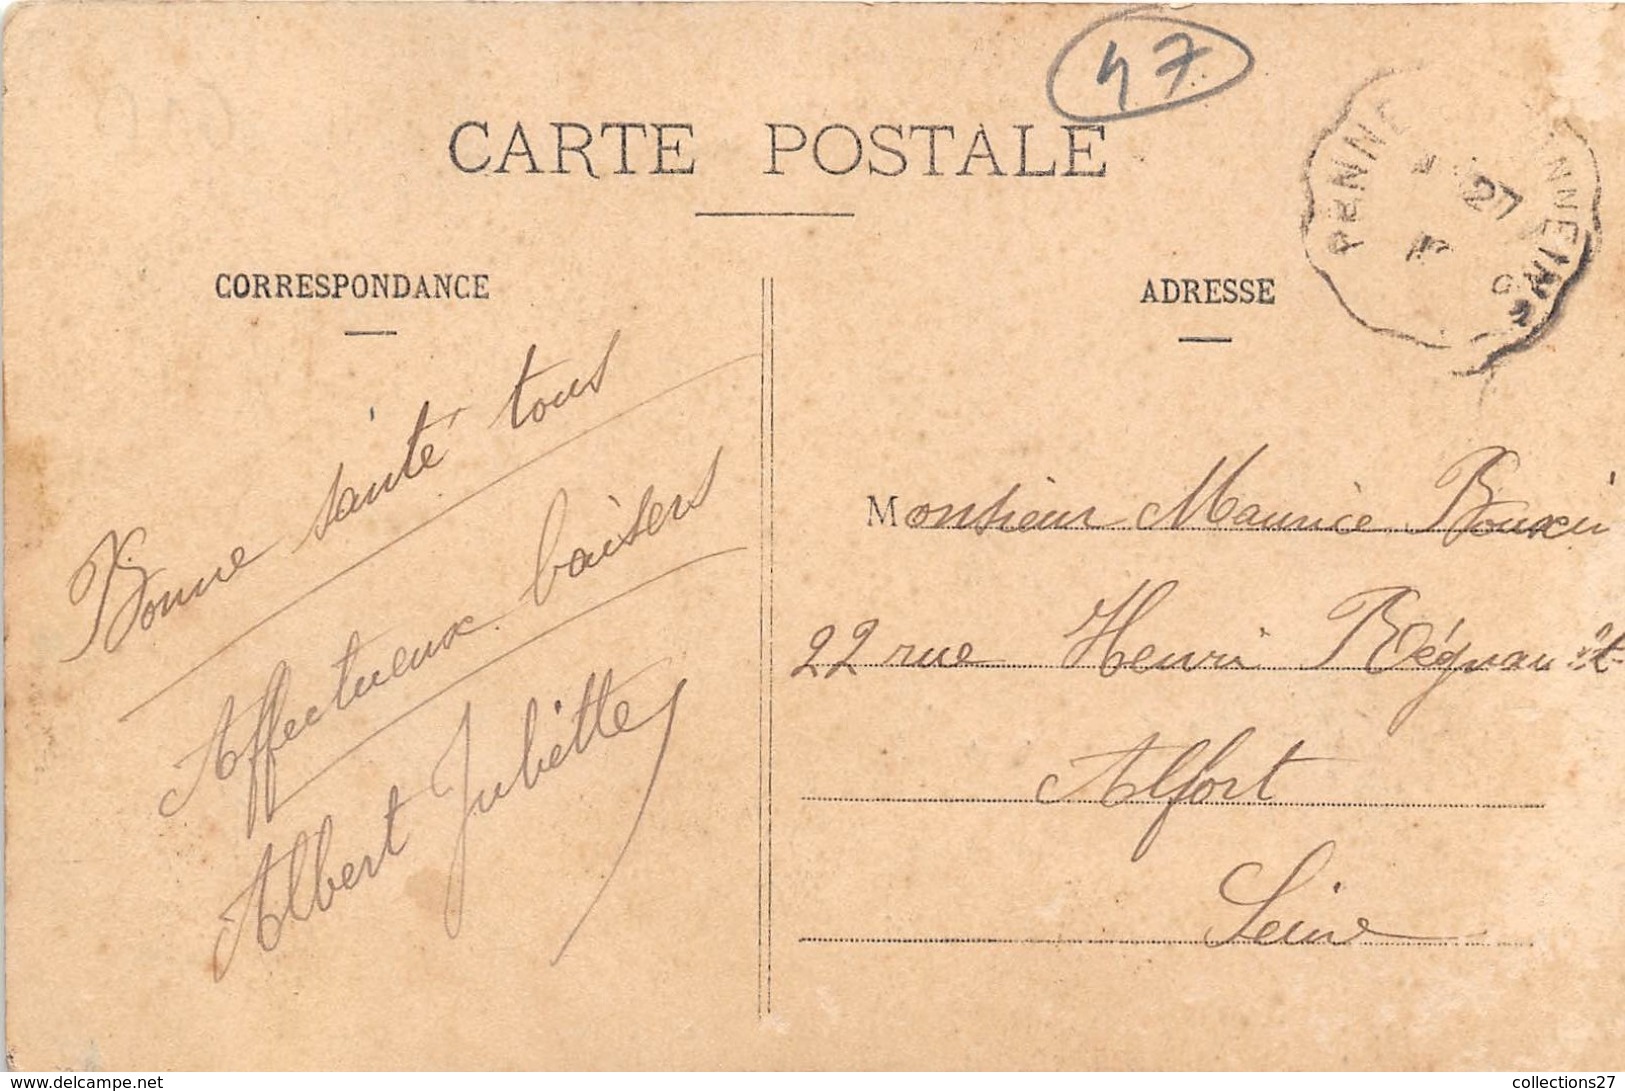 47
CARTE POSTALE
CORRESPONDANCE
ADRESSE
PENNE
27
Bonne santé tous
Affectueux baisers
Albert Juliette
Monsieur Maurice
22 rue Henri
Alfort
Seine
www.delcampe.net
collections27